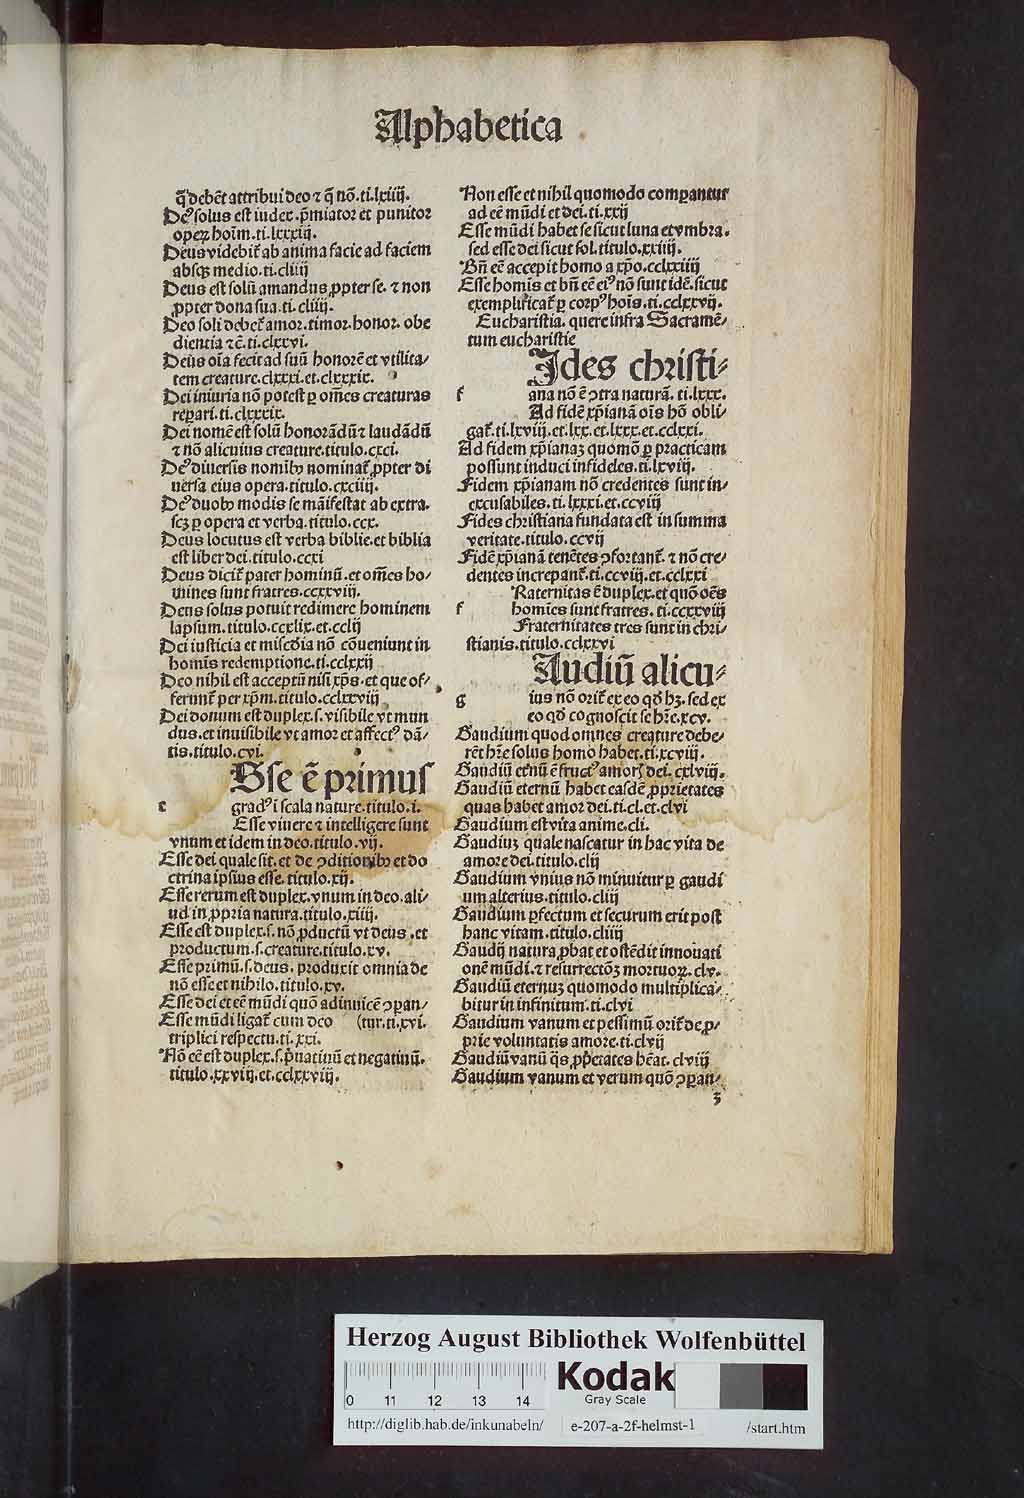 Alphabetica
q̄ debēt attribui deo ⁊ q̄ nō. ti. lxiiij.
Deꝰ solus est iudex. p̄miator et punitor
operꝝ hoīm. ti. lxxxiij.
Deus videbit᷑ ab anima facie ad faciem
absqꝫ medio. ti. cliiij
Deus est solū amandus ꝓpter se. ⁊ non
ꝓpter dona sua. ti. cliiij.
Deo soli debet᷑ amor. timor. honor. obe
dientia ⁊c̄. ti. clxxvi.
Deus oīa fecit ad suū honorē et vtilita⸗
tem creature. clxxxi. et. clxxxix.
Dei iniuria nō potest ꝑ om̄es creaturas
reꝑari. ti. clxxxix.
Dei nomē est solū honorādū ⁊ laudādū
⁊ nō alicuius creature. titulo. cxci.
Deꝰ diuersis nomībꝰ nominat᷑ ꝓpter di
uersa eius opera. titulo. cxciiij.
Deꝰ duobꝰ modis se māifestat ab extra.
scꝫ ꝑ opera et verba. titulo. ccx.
Deus locutus est verba biblie. et biblia
est liber dei. titulo. ccxi
Deus dicit᷑ pater hominū. et om̄es ho⸗
mines sunt fratres. ccxxviij.
Deus solus potuit redimere hominem
lapsum. titulo. ccxlix. et. cclij
Dei iusticia et misc̄dia nō cōueniunt in
homīs redemptione. ti. cclxxij
Deo nihil est acceptū nisi xp̄s. et que of⸗
ferunt᷑ per xp̄m. titulo. cclxxviij
Dei donum est duplex. s. visibile vt mun
dus. et inuisibile vt amor et affectꝰ dā⸗
tis. titulo. cvi.
Sse ē primus
e gradꝰ ī scala nature. titulo. i.
Esse viuere ⁊ intelligere sunt
vnum et idem in deo. titulo. vij.
Esse dei quale sit. et de ꝯditionibꝰ et do
ctrina ipsius esse. titulo. xij.
Esse rerum est duplex. vnum in deo. ali⸗
ud in ꝓpria natura. titulo. xiiij.
Esse est duplex. s. nō ꝓductū vt deus. et
productum. s. creature. titulo. xv.
Esse primū. s. deus. produxit omnia de
nō esse et nihilo. titulo. xv.
Esse dei et eē mūdi quō adinuicē ꝯꝑan⸗
Esse mūdi ligat᷑ cum deo (tur. ti. xvi.
triplici respectu. ti. xxi.
Nō eē est duplex. s. p̄uatiuū et negatiuū.
titulo. xxviij. et. cclxxviij.
Non esse et nihil quomodo comꝑantur
ad eē mūdi et dei. ti. xxij
Esse mūdi habet se sicut luna et vmbra.
sed esse dei sicut sol. titulo. xxiiij.
Bn̄ eē accepit homo a xp̄o. cclxxiiij
Esse homīs et bn̄ eē eiꝰ nō sunt idē. sicut
exemplificat᷑ ꝑ corpꝰ hoīs. ti. cclxxvij.
Eucharistia. quere infra Sacramē⸗
tum eucharistie
Ides christi⸗
f ana nō ē ꝯtra naturā. ti. lxxx.
Ad fidē xp̄ianā oīs hō obli⸗
gat᷑. ti. lxviij. et. lxx. et. lxxx. et. cclxxi.
Ad fidem xp̄ianaꝫ quomō ꝑ practicam
possunt induci infideles. ti. lxviij.
Fidem xp̄ianam nō credentes sunt in⸗
excusabiles. ti. lxxxi. et. ccviij
Fides christiana fundata est in summa
veritate. titulo. ccvij
Fidē xp̄ianā tenētes ꝯfortant᷑. ⁊ nō cre⸗
dentes increpant᷑. ti. ccviij. et. cclxxi
Raternitas ē duplex. et quō oēs
f homīes sunt fratres. ti. ccxxviij
Fraternitates tres sunt in chri⸗
stianis. titulo. cclxxvi
Audiū alicu⸗
g ius nō orit᷑ ex eo qd̄ hꝫ. sed ex
eo qd̄ cognoscit se hr̄e. xcv.
Gaudium quod omnes creature debe⸗
rēt hr̄e solus homo habet. ti. xcviij.
Gaudiū etnū ē fructꝰ amoris dei. cxlviij.
Gaudiū eternū habet easdē ꝓprietates
quas habet amor dei. ti. cl. et. clvi
Gaudium est vita anime. cli.
Gaudiuꝫ quale nascatur in hac vita de
amore dei. titulo. clij
Gaudium vnius nō minuitur ꝑ gaudi
um alterius. titulo. cliij
Gaudium ꝑfectum et securum erit post
hanc vitam. titulo. cliiij
Gaudij natura ꝓbat et ostēdit innouati
onē mūdi. ⁊ resurrectōꝫ mortuoꝝ. clv.
Gaudiū eternuꝫ quomodo multiplica⸗
bitur in infinitum. ti. clvi
Gaudium vanum et pessimū orit᷑ de ꝓ⸗
prie voluntatis amore. ti. clvij
Gaudiū vanū q̄s ꝓp̄etates hēat. clviij
Gaudium vanum et verum quō ꝯꝑan⸗
3
Herzog August Bibliothek Wolfenbüttel
0 11 12 13 14
Kodak
Gray Scale
http://diglib.hab.de/inkunabeln/ e-207-a-2f-helmst-1 /start.htm